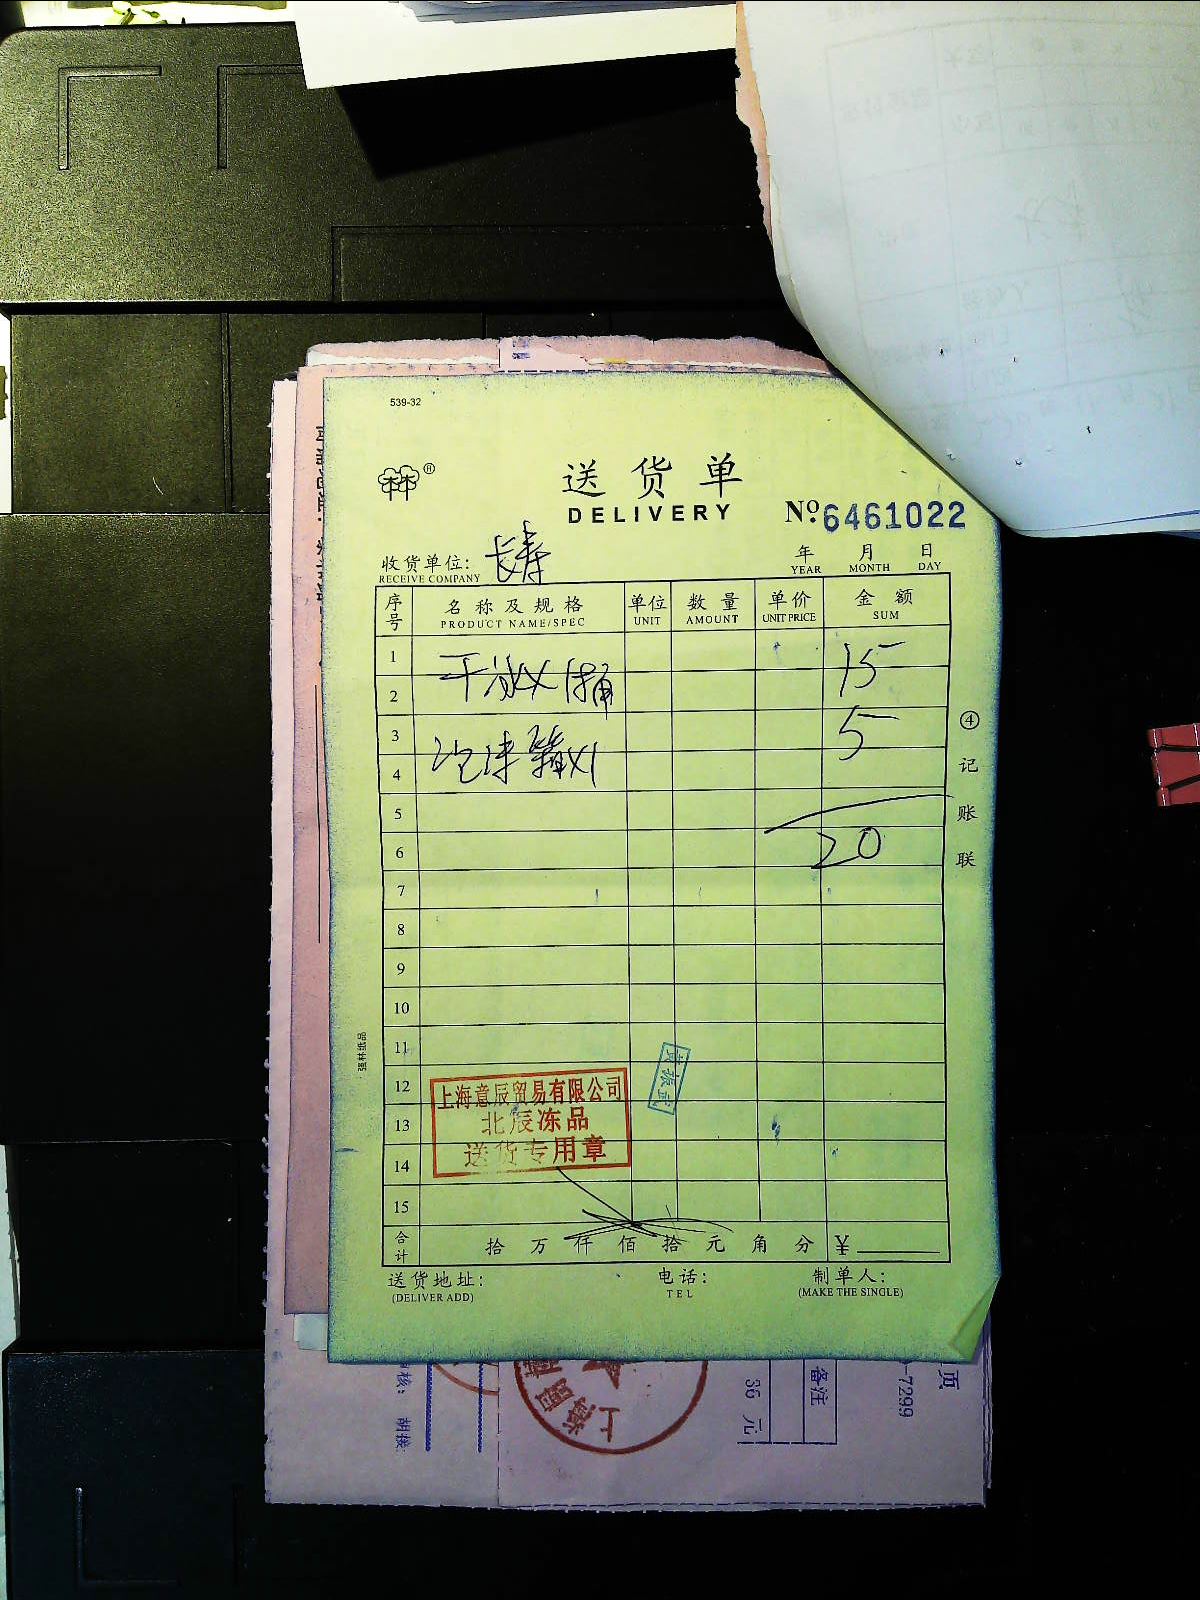 539-32
送货单
DELIVERY
№:6461022
收货单位: 长寿
RECEIVE COMPANY
年 月 日
YEAR MONTH DAY
序号 名称及规格 单位 数量 单价 金额
PRODUCT NAME/SPEC UNIT AMOUNT UNIT PRICE SUM
1
干冰×1桶 15
2
3
泡沫箱×1 5
4
5
6 20
7
8
9
10
11
12
13
14
15
上海意辰贸易有限公司
北辰冻品
送货专用章
合计 拾 万 仟 佰 拾 元 角 分 ¥
送货地址: 电话: 制单人:
(DELIVER ADD) TEL (MAKE THE SINGLE)
④记账联
强林纸品
备注
36 元
页
-7299